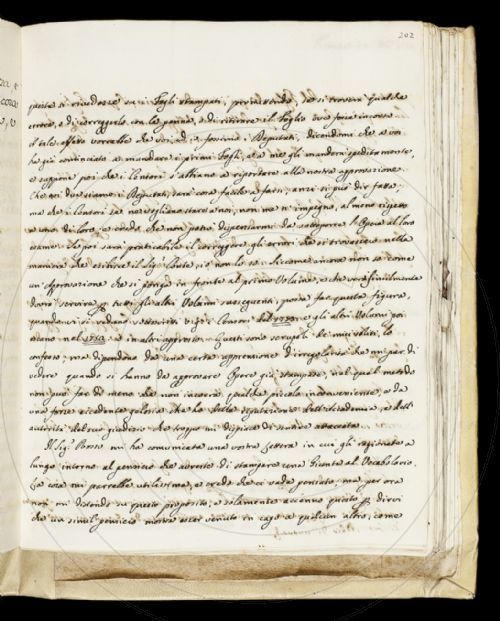 202
questo si rivedesse su i Fogli stampati, permettendo, se si trovera qualche
errore, o di correggerlo con la penna, o di ritirare il Foglio ove fosse incorso
il tale effetto vorrebbe che voi, ed io fossimo i Deputati, dicendomi che a voi
ha già cominciato a mandare i primi Fogli, e a me gli manderà speditamente,
e suppone poi che i Censori s'abbiano a riportare alla nostra approvazione.
Che noi due siamo i Deputati, sarà cosa facile a farsi, anzi si può dir fatta,
ma che i Censori se ne vogliano stare a noi, non me ne impegno, al meno rispetto
a uno di loro, e credo che non potrò dispensarmi da sottoporre l'Opera al loro
esame. Se poi sarà praticabile il correggere gli errori che si trovassero nella
maniera che esibisce il Sig.r Conte, io non lo so. Siccome ancora non so come
un'Approvazione che si ponga in fronte al primo Volume, e che verisimilmente
dovrà servire per tutti gli altri Volumi susseguenti, possa far questa figura,
quando non si vedano sottoscritti i Censori del 1750 e gli altri Volumi poi
siano nel 1752 e in altri appresso. Questi sono scrupoli de' miei soliti, lo
confesso; ma dipendono da una certa apprensione d'irregolarità che mi par di
vedere quando si hanno da approvare Opere già stampate, nel qual metodo
non può far di meno che non incorra qualche piccolo inconveniente, e da
una forse eccedente gelosia che ho della riputazione dell'Accademia, e dell'
autorità del suo giudizio che troppo mi dispiace di sentire attaccata.
Il Sig.r Rosso mi ha comunicata una vostra Lettera in cui gli ragionate a
lungo intorno al pensiero che avreste di stampare una Giunta al Vocabolario.
La cosa mi parrebbe utilissima, e credo che ci vada pensato; ma per ora
non mi distendo su questo proposito, e solamente accenno questo per dirvi
che un simil pensiero mostra esser venuto in capo a qualcun altro, come